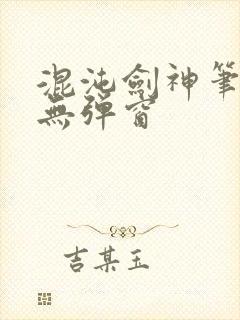 混沌劍神筆
無彈窗
吉某玉